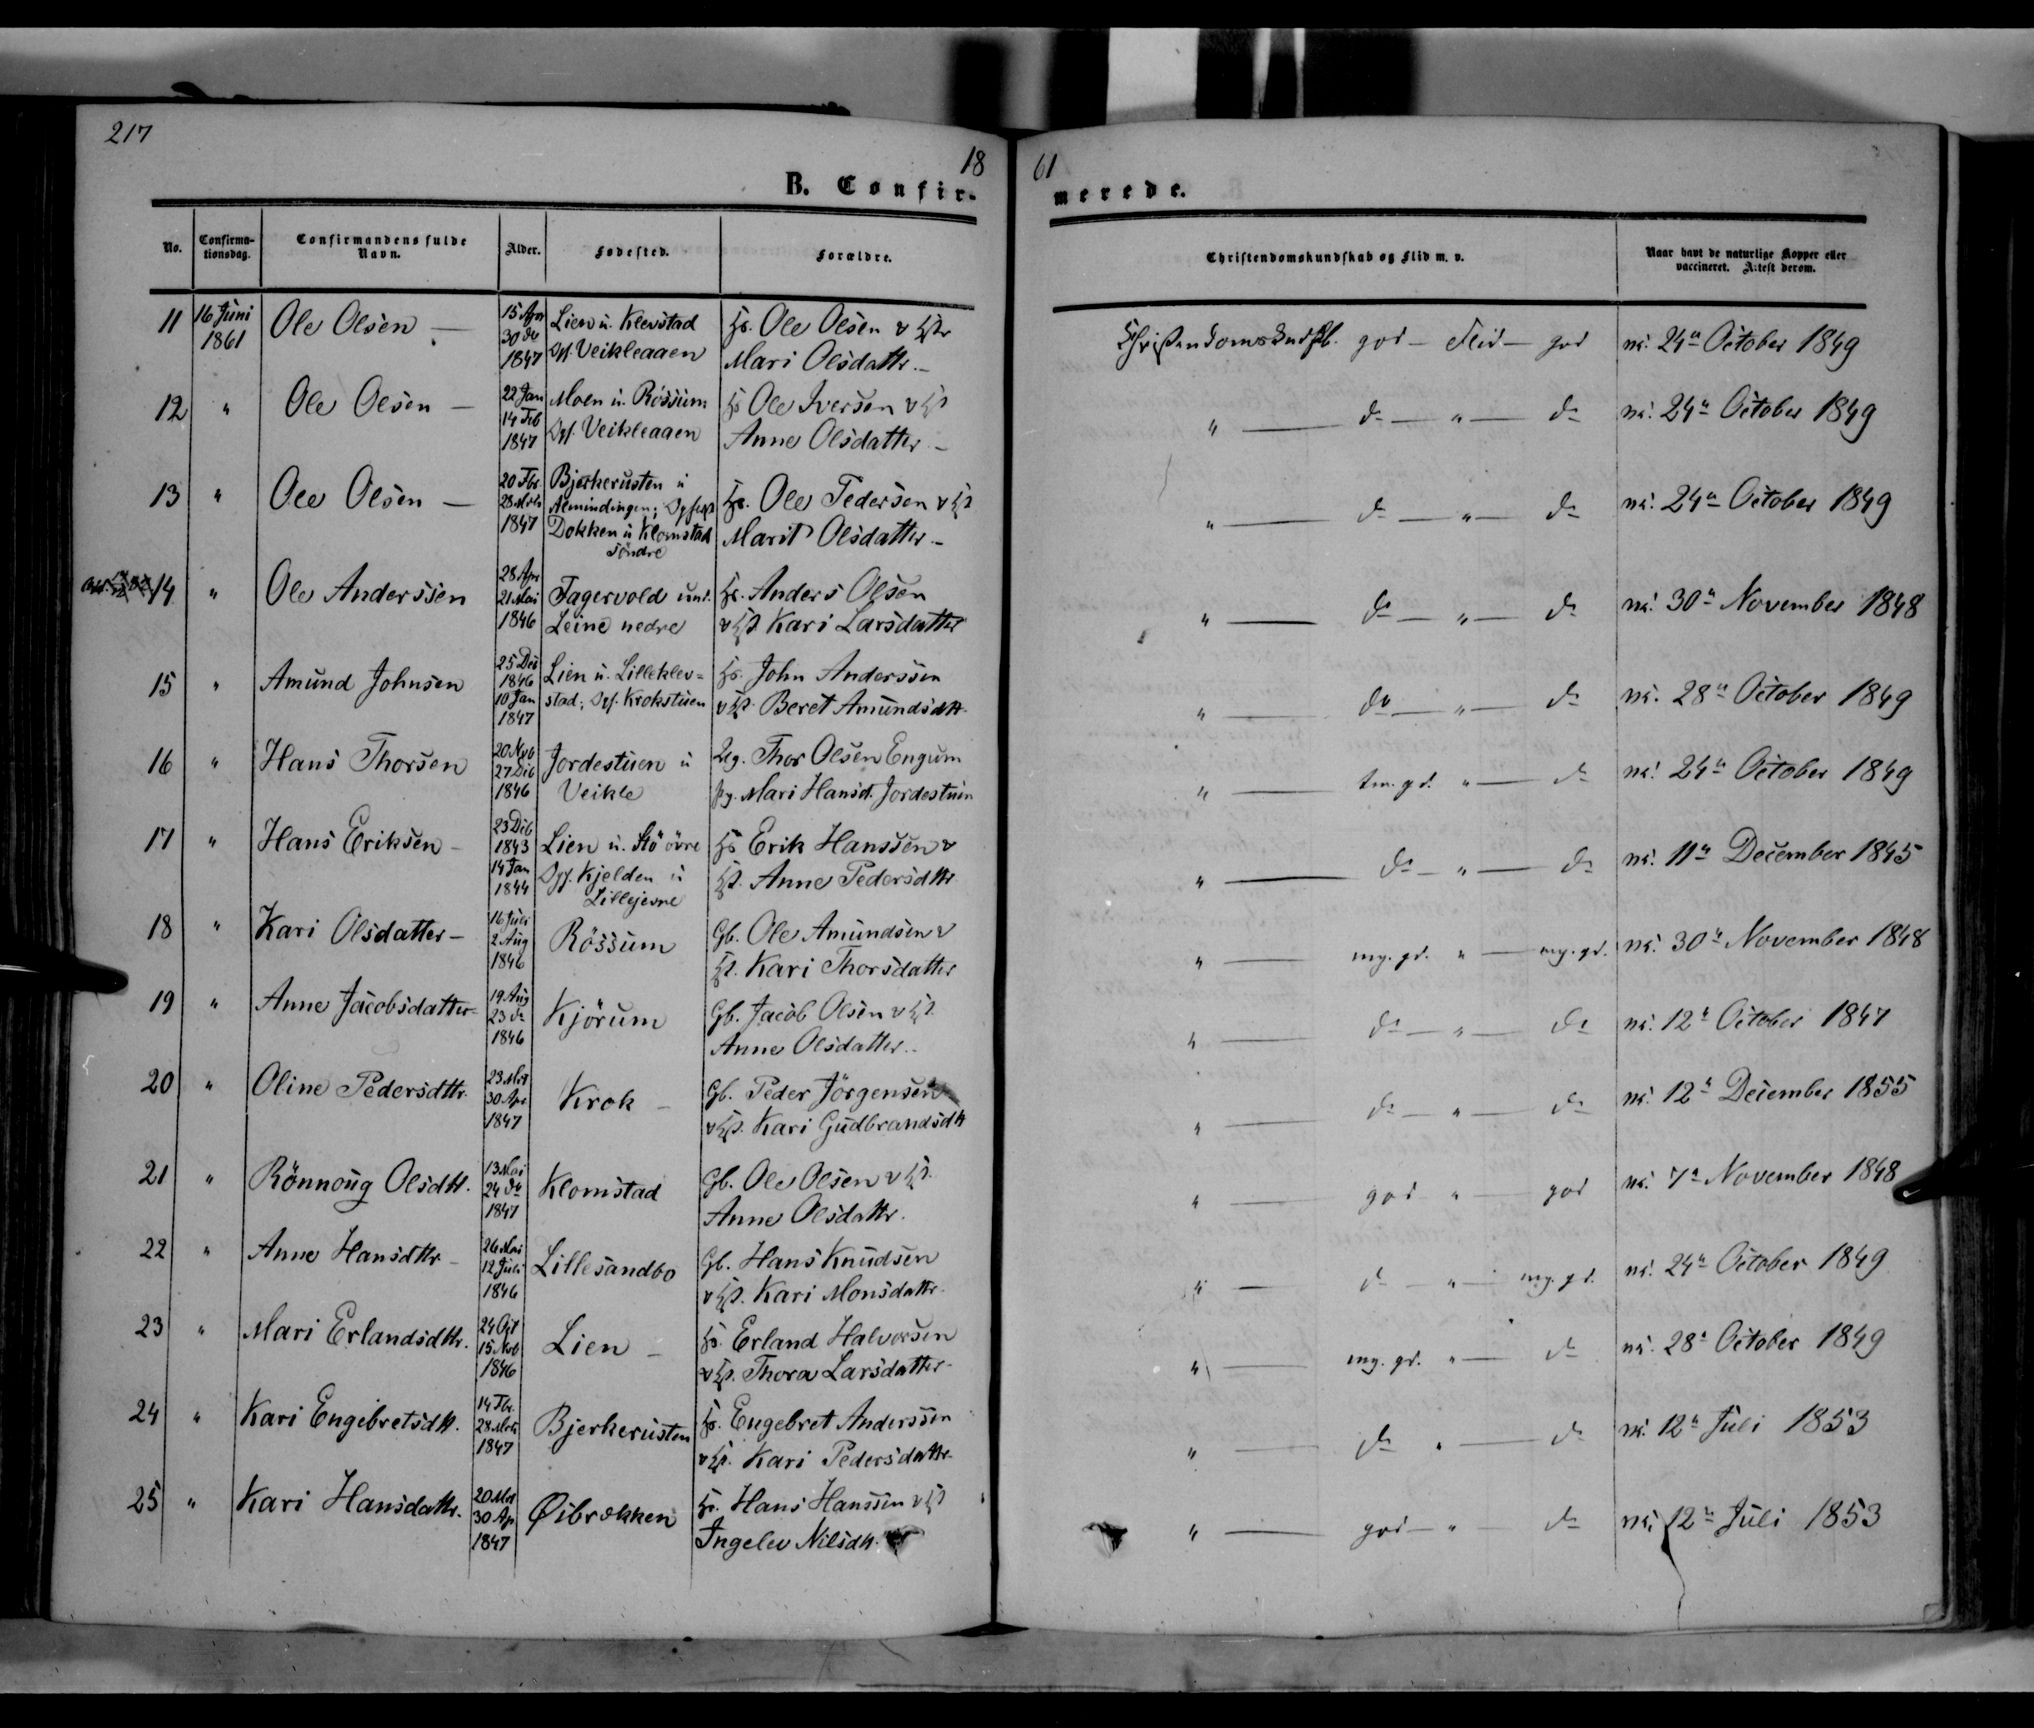 217
18 61
B. Confir- merede.
No. Confirma-tionsdag. Confirmandens fulde Navn. Alder. Fødested. Forældre. Christendomskundskab og Flid m. v. Naar havt de naturlige Kopper eller vaccineret. Attest derom.
11 16 Juni 1861 Ole Olsen — 15 Apr 30 do 1847 Lien u. Klevstad Opf. Veikleaaen Hs. Ole Olsen v Hst Mari Olsdattr. — Christendomskundskb. god — Flid — god nr. 24n October 1849
12 " Ole Olsen — 22 Jan 14 Feb 1847 Moen u. Rössum Opf. Veikleaaen Hs Ole Iversen v Hst Anne Olsdatter — " — do — " — do nr. 24n October 1849
13 " Ole Olsen — 20 Fbr. 28 Mrts 1847 Bjerkerusten i Almindingen; Dokken u Klomstad söndre Hs. Ole Pedersen v Hst Marit Olsdatter — " — do — " — do nr. 24n October 1849
14 " Ole Anderssen 28 Apr 21 Mai 1846 Fagervold und. Leine nedre Hs. Anders Olsen v Hst Kari Larsdatter " — do — " — do nr. 30n November 1848
15 " Amund Johnsen 25 Dec 1846 10 Jan 1847 Lien u. Lilleklev= stad; Opf. Krokstuen Hs. John Anderssen v Hst. Beret Amundsdtr. " — do — " — do nr. 28n October 1849
16 " Hans Thorsen 20 Nvb 27 Dcb 1846 Jordestuen u Veikle Ug. Thor Olsen Engum Pg. Mari Hansd. Jordestuen " — tm. gd. " — do nr. 24n October 1849
17 " Hans Eriksen — 23 Dcb 1843 14 Jan 1844 Lien u. Stö övre Opf. Kjelden u Lillejevne Hs Erik Hanssen v Hst. Anne Pedersdttr. " — do — " — do nr. 11n December 1845
18 " Kari Olsdatter — 16 Juli 2 Aug 1846 Rössum Gb. Ole Amundsen v Hst. Kari Thorsdatter " — mg. gd. " — mg. gd. nr. 30n November 1848
19 " Anne Jacobsdatter 19 Aug 23 do 1846 Kjörum Gb. Jacob Olsen v Hst. Anne Olsdatter. " — do — " — do nr. 12n October 1847
20 " Oline Pedersdttr. 23 Mrt 30 Apr 1847 Krok — Gb. Peder Jörgensen v Hst. Kari Gudbrandsdtr " — do — " — do nr. 12n December 1855
21 " Rönnoug Olsdtr. 13 Mai 24 do 1847 Klomstad Gb. Ole Olsen v Hst. Anne Olsdattr. " — god " — god nr. 7n November 1848
22 " Anne Hansdttr — 26 Mai 12 Juli 1846 Lillesandbo Gb. Hans Knudsen v Hst. Kari Monsdattr. " — do — " — mg. gd. nr. 24n October 1849
23 " Mari Erlandsdttr. 24 Oct 15 Nvb 1846 Lien — Hs. Erland Halvorsen v Hst. Thora Larsdatter " — mg. gd. " — do nr. 28n October 1849
24 " Kari Engebretsdtr. 14 Fbr. 28 Mrts 1847 Bjerkerusten Hs. Engebret Anderssen v Hst. Kari Pedersdattr. " — do " — do nr. 12n Juli 1853
25 " Kari Hansdattr. 20 Mrt 30 Ap 1847 Øibrekken Hs. Hans Hanssen v Hst Ingelev Nilsdtr. " — god — " — do nr. 12n Juli 1853